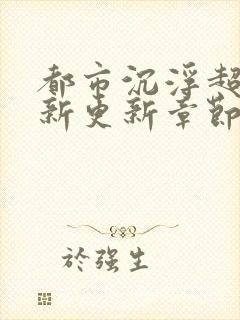 都市沉浮超
新更新章節
於強生